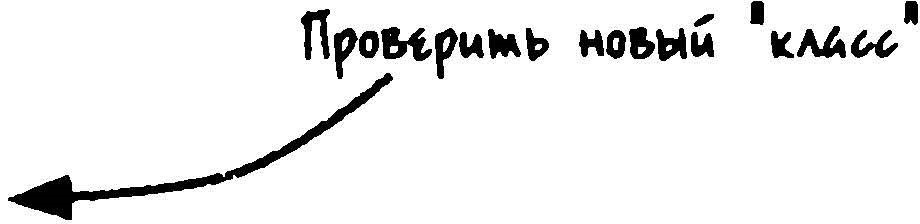 Проверить новый "класс"